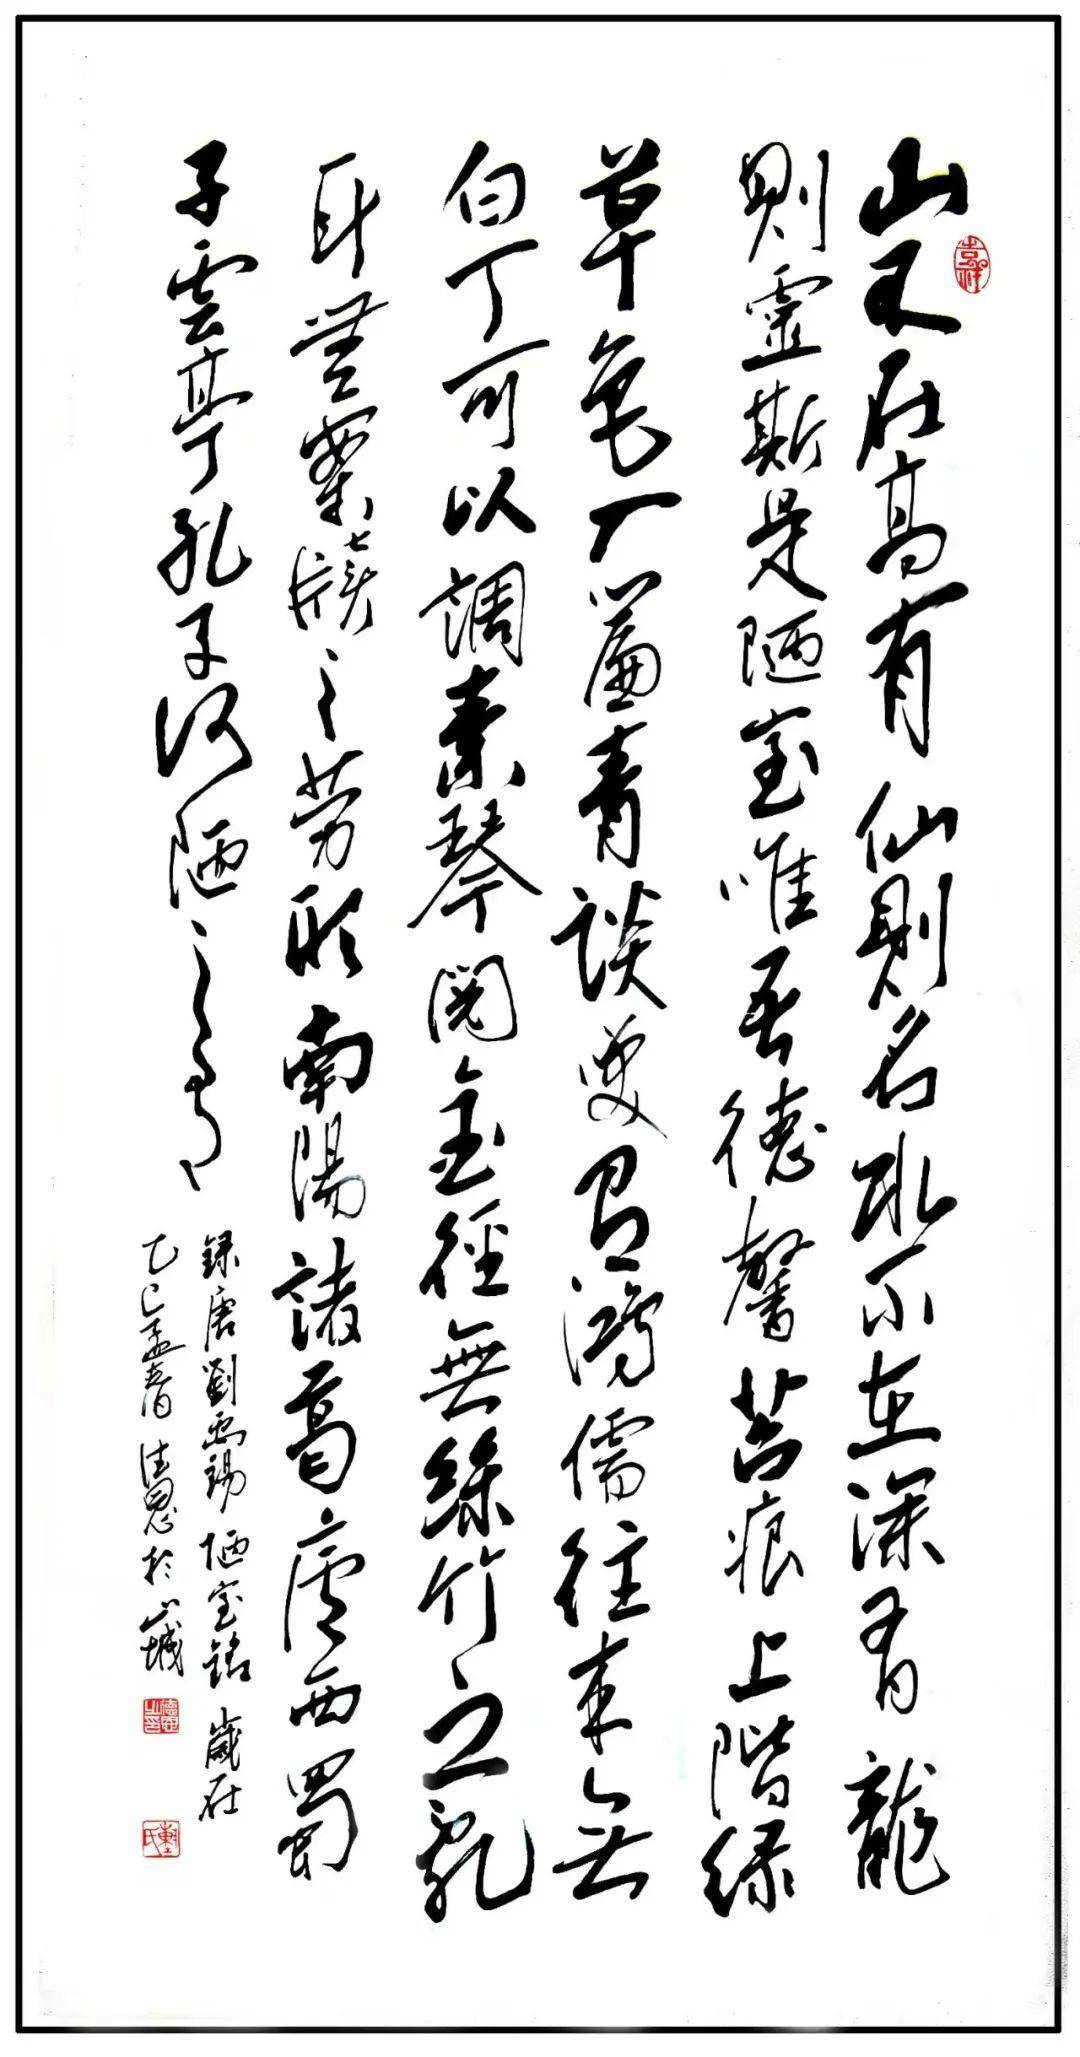 山不在高有仙則名水不在深有龍
則靈斯是陋室唯吾德馨苔痕上階綠
草色入簾青談笑有鴻儒往來無
白丁可以調素琴閱金徑無絲竹之亂
耳無案牘之勞形南陽諸葛廬西蜀
子雲亭孔子何陋之有
錄唐劉禹錫陋室銘 歲在
乙巳孟春 於山城